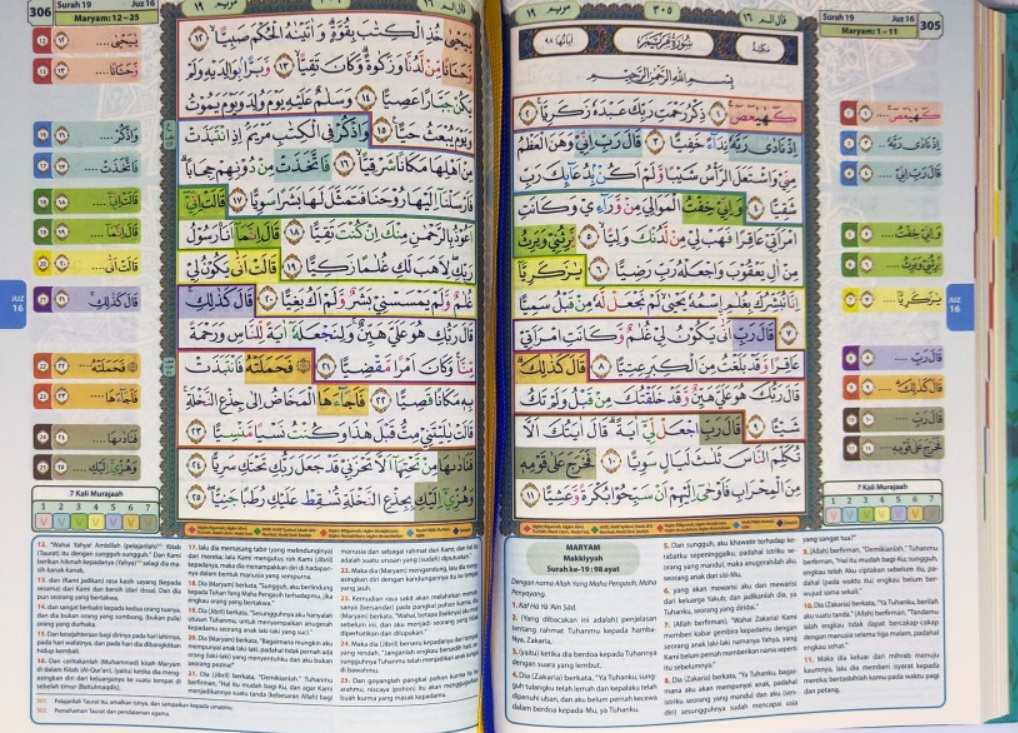 قال الم ١٦
٣٠٥
مريم ١٩
Surah 19 Juz 16
Maryam: 1 – 11
305
مكية
سورة مريم
اياتها ٩٨
بسم الله الرحمن الرحيم
كۤهٰيٰعۤصۤ ۚ ١ ذِكْرُ رَحْمَتِ رَبِّكَ عَبْدَهٗ زَكَرِيَّا ۚ ٢
اِذْ نَادٰى رَبَّهٗ نِدَاۤءً خَفِيًّا ٣ قَالَ رَبِّ اِنِّيْ وَهَنَ الْعَظْمُ
مِنِّيْ وَاشْتَعَلَ الرَّأْسُ شَيْبًا وَّلَمْ اَكُنْۢ بِدُعَاۤىِٕكَ رَبِّ
شَقِيًّا ٤ وَاِنِّيْ خِفْتُ الْمَوَالِيَ مِنْ وَّرَاۤءِيْ وَكَانَتِ
امْرَاَتِيْ عَاقِرًا فَهَبْ لِيْ مِنْ لَّدُنْكَ وَلِيًّا ۙ ٥ يَّرِثُنِيْ وَيَرِثُ
مِنْ اٰلِ يَعْقُوْبَ وَاجْعَلْهُ رَبِّ رَضِيًّا ٦ يٰزَكَرِيَّآ
اِنَّا نُبَشِّرُكَ بِغُلٰمِ ِۨاسْمُهٗ يَحْيٰىۙ لَمْ نَجْعَلْ لَّهٗ مِنْ قَبْلُ سَمِيًّا
٧ قَالَ رَبِّ اَنّٰى يَكُوْنُ لِيْ غُلٰمٌ وَّكَانَتِ امْرَاَتِيْ
عَاقِرًا وَّقَدْ بَلَغْتُ مِنَ الْكِبَرِ عِتِيًّا ٨ قَالَ كَذٰلِكَۗ
قَالَ رَبُّكَ هُوَ عَلَيَّ هَيِّنٌ وَّقَدْ خَلَقْتُكَ مِنْ قَبْلُ وَلَمْ تَكُ
شَيْـًٔا ٩ قَالَ رَبِّ اجْعَلْ لِّيْٓ اٰيَةً ۗقَالَ اٰيَتُكَ اَلَّا
تُكَلِّمَ النَّاسَ ثَلٰثَ لَيَالٍ سَوِيًّا ١٠ فَخَرَجَ عَلٰى قَوْمِهٖ
مِنَ الْمِحْرَابِ فَاَوْحٰٓى اِلَيْهِمْ اَنْ سَبِّحُوْا بُكْرَةً وَّعَشِيًّا ١١
كۤهٰيٰعۤصۤ ....
اِذْ نَادٰى رَبَّهٗ ..
قَالَ رَبِّ اِنِّيْ ....
وَاِنِّيْ خِفْتُ ....
يَّرِثُنِيْ وَيَرِثُ ....
يٰزَكَرِيَّآ ....
قَالَ رَبِّ ....
قَالَ كَذٰلِكَ ....
قَالَ رَبِّ ....
فَخَرَجَ عَلٰى قَوْمِهٖ
JUZ
16
7 Kali Murajaah
1 2 3 4 5 6 7
V V V V V V V
MARYAM
Makkiyyah
Surah ke-19 : 98 ayat
Dengan nama Allah Yang Maha Pengasih, Maha
Penyayang.
1. Kāf Hā Yā 'Aīn Ṣād.
2. (Yang dibacakan ini adalah) penjelasan
tentang rahmat Tuhanmu kepada hamba-
Nya, Zakaria,
3. (yaitu) ketika dia berdoa kepada Tuhannya
dengan suara yang lembut.
4. Dia (Zakaria) berkata, "Ya Tuhanku, sung-
guh tulangku telah lemah dan kepalaku telah
dipenuhi uban, dan aku belum pernah kecewa
dalam berdoa kepada-Mu, ya Tuhanku.
5. Dan sungguh, aku khawatir terhadap ke-
rabatku sepeninggalku, padahal istriku se-
orang yang mandul, maka anugerahilah aku
seorang anak dari sisi-Mu.
6. yang akan mewarisi aku dan mewarisi
dari keluarga Yakub; dan jadikanlah dia, ya
Tuhanku, seorang yang diridai."
7. (Allah berfirman), "Wahai Zakaria! Kami
memberi kabar gembira kepadamu dengan
seorang anak laki-laki namanya Yahya, yang
Kami belum pernah memberikan nama seperti
itu sebelumnya."
8. Dia (Zakaria) berkata, "Ya Tuhanku, bagai-
mana aku akan mempunyai anak, padahal
istriku seorang yang mandul dan aku (sen-
diri) sesungguhnya sudah mencapai usia
yang sangat tua?"
9. (Allah) berfirman, "Demikianlah." Tuhanmu
berfirman, "Hal itu mudah bagi-Ku; sungguh,
engkau telah Aku ciptakan sebelum itu, pa-
dahal (pada waktu itu) engkau belum ber-
wujud sama sekali."
10. Dia (Zakaria) berkata, "Ya Tuhanku, berilah
aku suatu tanda." (Allah) berfirman, "Tandamu
ialah engkau tidak dapat bercakap-cakap
dengan manusia selama tiga malam, padahal
engkau sehat."
11. Maka dia keluar dari mihrab menuju
kaumnya, lalu dia memberi isyarat kepada
mereka; bertasbihlah kamu pada waktu pagi
dan petang.
306
Surah 19 Juz 16
Maryam: 12 – 25
مريم ١٩
قال الم ١٦
يٰيَحْيٰى خُذِ الْكِتٰبَ بِقُوَّةٍ ۗوَاٰتَيْنٰهُ الْحُكْمَ صَبِيًّاۙ ١٢
وَّحَنَانًا مِّنْ لَّدُنَّا وَزَكٰوةً ۗوَكَانَ تَقِيًّا ۙ ١٣ وَّبَرًّاۢ بِوَالِدَيْهِ وَلَمْ
يَكُنْ جَبَّارًا عَصِيًّا ١٤ وَسَلٰمٌ عَلَيْهِ يَوْمَ وُلِدَ وَيَوْمَ يَمُوْتُ
وَيَوْمَ يُبْعَثُ حَيًّا ١٥ وَاذْكُرْ فِى الْكِتٰبِ مَرْيَمَۘ اِذِ انْتَبَذَتْ
مِنْ اَهْلِهَا مَكَانًا شَرْقِيًّا ۙ ١٦ فَاتَّخَذَتْ مِنْ دُوْنِهِمْ حِجَابًاۗ
فَاَرْسَلْنَآ اِلَيْهَا رُوْحَنَا فَتَمَثَّلَ لَهَا بَشَرًا سَوِيًّا ١٧ قَالَتْ اِنِّيْٓ
اَعُوْذُ بِالرَّحْمٰنِ مِنْكَ اِنْ كُنْتَ تَقِيًّا ١٨ قَالَ اِنَّمَآ اَنَا۠ رَسُوْلُ
رَبِّكِۖ لِاَهَبَ لَكِ غُلٰمًا زَكِيًّا ١٩ قَالَتْ اَنّٰى يَكُوْنُ لِيْ
غُلٰمٌ وَّلَمْ يَمْسَسْنِيْ بَشَرٌ وَّلَمْ اَكُ بَغِيًّا ٢٠ قَالَ كَذٰلِكِۚ
قَالَ رَبُّكِ هُوَ عَلَيَّ هَيِّنٌۚ وَلِنَجْعَلَهٗٓ اٰيَةً لِّلنَّاسِ وَرَحْمَةً
مِّنَّاۚ وَكَانَ اَمْرًا مَّقْضِيًّا ٢١ ۞ فَحَمَلَتْهُ فَانْتَبَذَتْ
بِهٖ مَكَانًا قَصِيًّا ٢٢ فَاَجَاۤءَهَا الْمَخَاضُ اِلٰى جِذْعِ النَّخْلَةِۚ
قَالَتْ يٰلَيْتَنِيْ مِتُّ قَبْلَ هٰذَا وَكُنْتُ نَسْيًا مَّنْسِيًّا ٢٣
فَنَادٰىهَا مِنْ تَحْتِهَآ اَلَّا تَحْزَنِيْ قَدْ جَعَلَ رَبُّكِ تَحْتَكِ سَرِيًّا ٢٤
وَهُزِّيْٓ اِلَيْكِ بِجِذْعِ النَّخْلَةِ تُسٰقِطْ عَلَيْكِ رُطَبًا جَنِيًّاۖ ٢٥
يٰيَحْيٰى ....
وَّحَنَانًا....
وَاذْكُرْ ....
فَاتَّخَذَتْ ....
قَالَتْ اِنِّيْٓ ....
قَالَ اِنَّمَآ ....
قَالَتْ اَنّٰى....
قَالَ كَذٰلِكِ
۞ فَحَمَلَتْهُ ....
فَاَجَاۤءَهَا ....
فَنَادٰىهَا....
وَهُزِّيْٓ اِلَيْكِ ....
JUZ
16
7 Kali Murajaah
1 2 3 4 5 6 7
V V V V V V V
12. "Wahai Yahya! Ambillah (pelajarilah) Kitab
(Taurat) itu dengan sungguh-sungguh." Dan Kami
berikan hikmah kepadanya (Yahya) selagi dia ma-
sih kanak-kanak,
13. dan (Kami jadikan) rasa kasih sayang (kepada
sesama) dari Kami dan bersih (dari dosa). Dan dia
pun seorang yang bertakwa,
14. dan sangat berbakti kepada kedua orang tuanya,
dan dia bukan orang yang sombong, (bukan pula)
orang yang durhaka.
15. Dan kesejahteraan bagi dirinya pada hari lahirnya,
pada hari wafatnya, dan pada hari dia dibangkitkan
hidup kembali.
16. Dan ceritakanlah (Muhammad) kisah Maryam
di dalam Kitab (Al-Qur'an), (yaitu) ketika dia meng-
asingkan diri dari keluarganya ke suatu tempat di
sebelah timur (Baitulmaqdis),
17. lalu dia memasang tabir (yang melindunginya)
dari mereka; lalu Kami mengutus roh Kami (Jibril)
kepadanya, maka dia menampakkan diri di hadapan-
nya dalam bentuk manusia yang sempurna.
18. Dia (Maryam) berkata, "Sungguh, aku berlindung
kepada Tuhan Yang Maha Pengasih terhadapmu, jika
engkau orang yang bertakwa."
19. Dia (Jibril) berkata, "Sesungguhnya aku hanyalah
utusan Tuhanmu, untuk menyampaikan anugerah
kepadamu seorang anak laki-laki yang suci."
20. Dia (Maryam) berkata, "Bagaimana mungkin aku
mempunyai anak laki-laki, padahal tidak pernah ada
orang (laki-laki) yang menyentuhku dan aku bukan
seorang pezina!"
21. Dia (Jibril) berkata, "Demikianlah." Tuhanmu
berfirman, "Hal itu mudah bagi-Ku, dan agar Kami
menjadikannya suatu tanda (kebesaran Allah) bagi
manusia dan sebagai rahmat dari Kami; dan hal itu
adalah suatu urusan yang (sudah) diputuskan."
22. Maka dia (Maryam) mengandung, lalu dia meng-
asingkan diri dengan kandungannya itu ke tempat
yang jauh.
23. Kemudian rasa sakit akan melahirkan memaksa-
nya (bersandar) pada pangkal pohon kurma, dia
(Maryam) berkata, "Wahai, betapa (baiknya) aku mati
sebelum ini, dan aku menjadi seorang yang tidak
diperhatikan dan dilupakan."
24. Maka dia (Jibril) berseru kepadanya dari tempat
yang rendah, "Janganlah engkau bersedih hati,
sesungguhnya Tuhanmu telah menjadikan anak sungai
di bawahmu.
25. Dan goyanglah pangkal pohon kurma itu ke
arahmu, niscaya (pohon) itu akan menggugurkan
buah kurma yang masak kepadamu.
501 Pelajarilah Taurat itu, amalkan isinya, dan sampaikan kepada umatmu.
502 Pemahaman Taurat dan pendalaman agama.